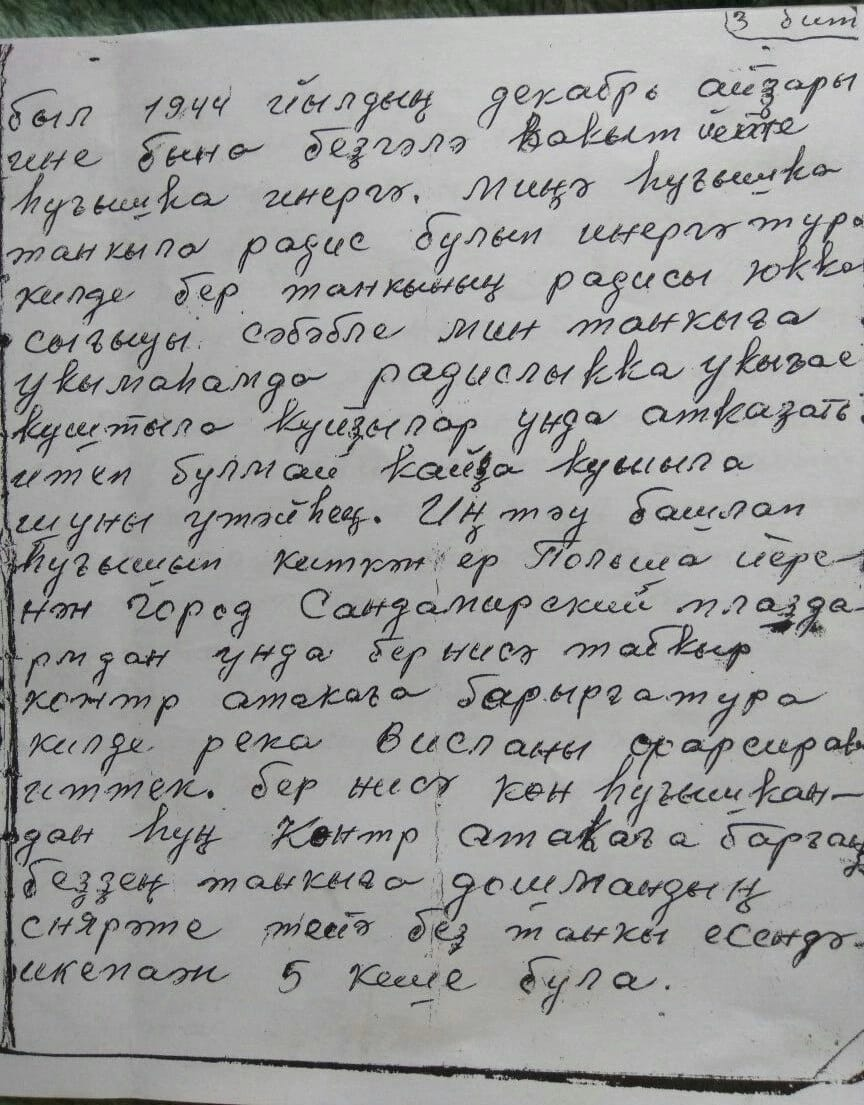 3 бит
был 1944 йылдың декабрь айҙары
ине бына беҙгәлә вакыт йетте
һуғышка инергә. Миңә һуғышка
танкыла радис булып инергә тура
килде бер танкының радисы юкка
сығыуы сәбәбле мин танкыға
укымаһамда радислыкка укығас
куштыла куйҙылар унда атказать
итеп булмай кайҙа кушыла
шуны үтәйһең. Иң тәү башлап
һуғышып киткән ер Польша йере-
нән город Сандамирский плазда
рмдан унда бер нисә тапкыр
контр атакаға барырға тура
килде река Висланы фарсирав
иттек. бер нисә көн һуғышкан-
дан һуң Контр атакаға барғац
беҙҙең танкыға дошмандың
снярәте тейә беҙ танкы есендә
икепаж 5 кеше була.